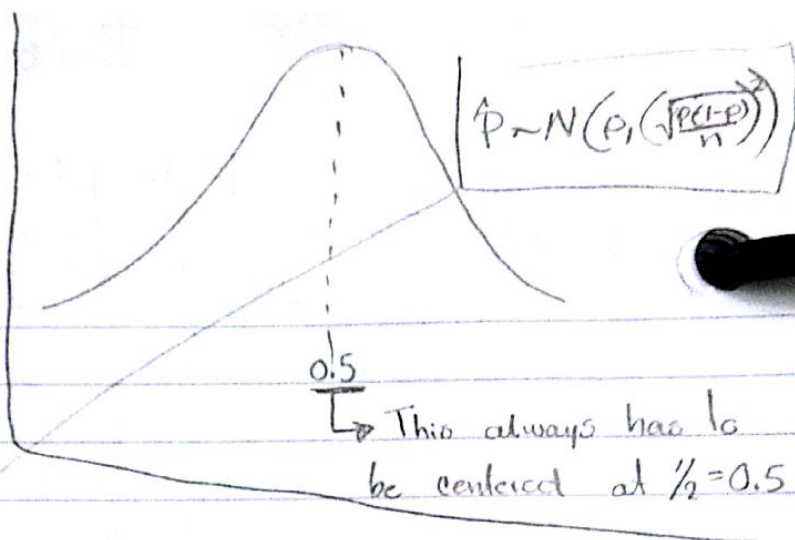 p̂ ~ N(p, (√(p(1-p)/n))²)
0.5
This always has to
be centered at 1/2 = 0.5